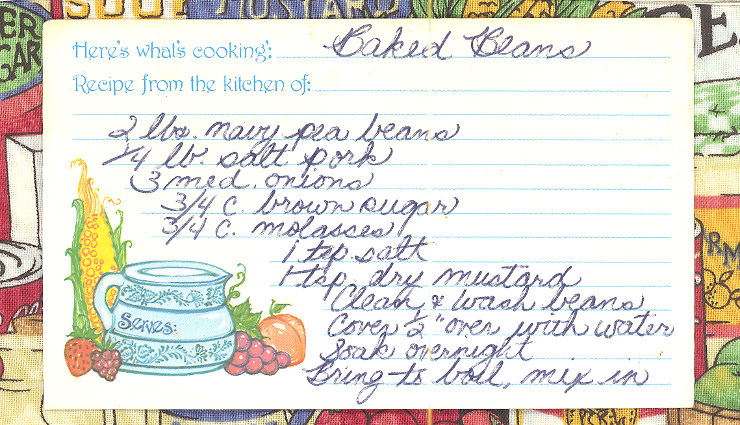 MUSTARD
Here's what's cooking: Baked Beans
Recipe from the kitchen of:
2 lbs. navy pea beans
1/4 lb. salt pork
3 med. onions
3/4 c. brown sugar
3/4 c. molasses
1 tsp salt
1 tsp. dry mustard
Clean & wash beans
Cover 2" over with water
Soak overnight
Bring to boil, mix in
Serves: